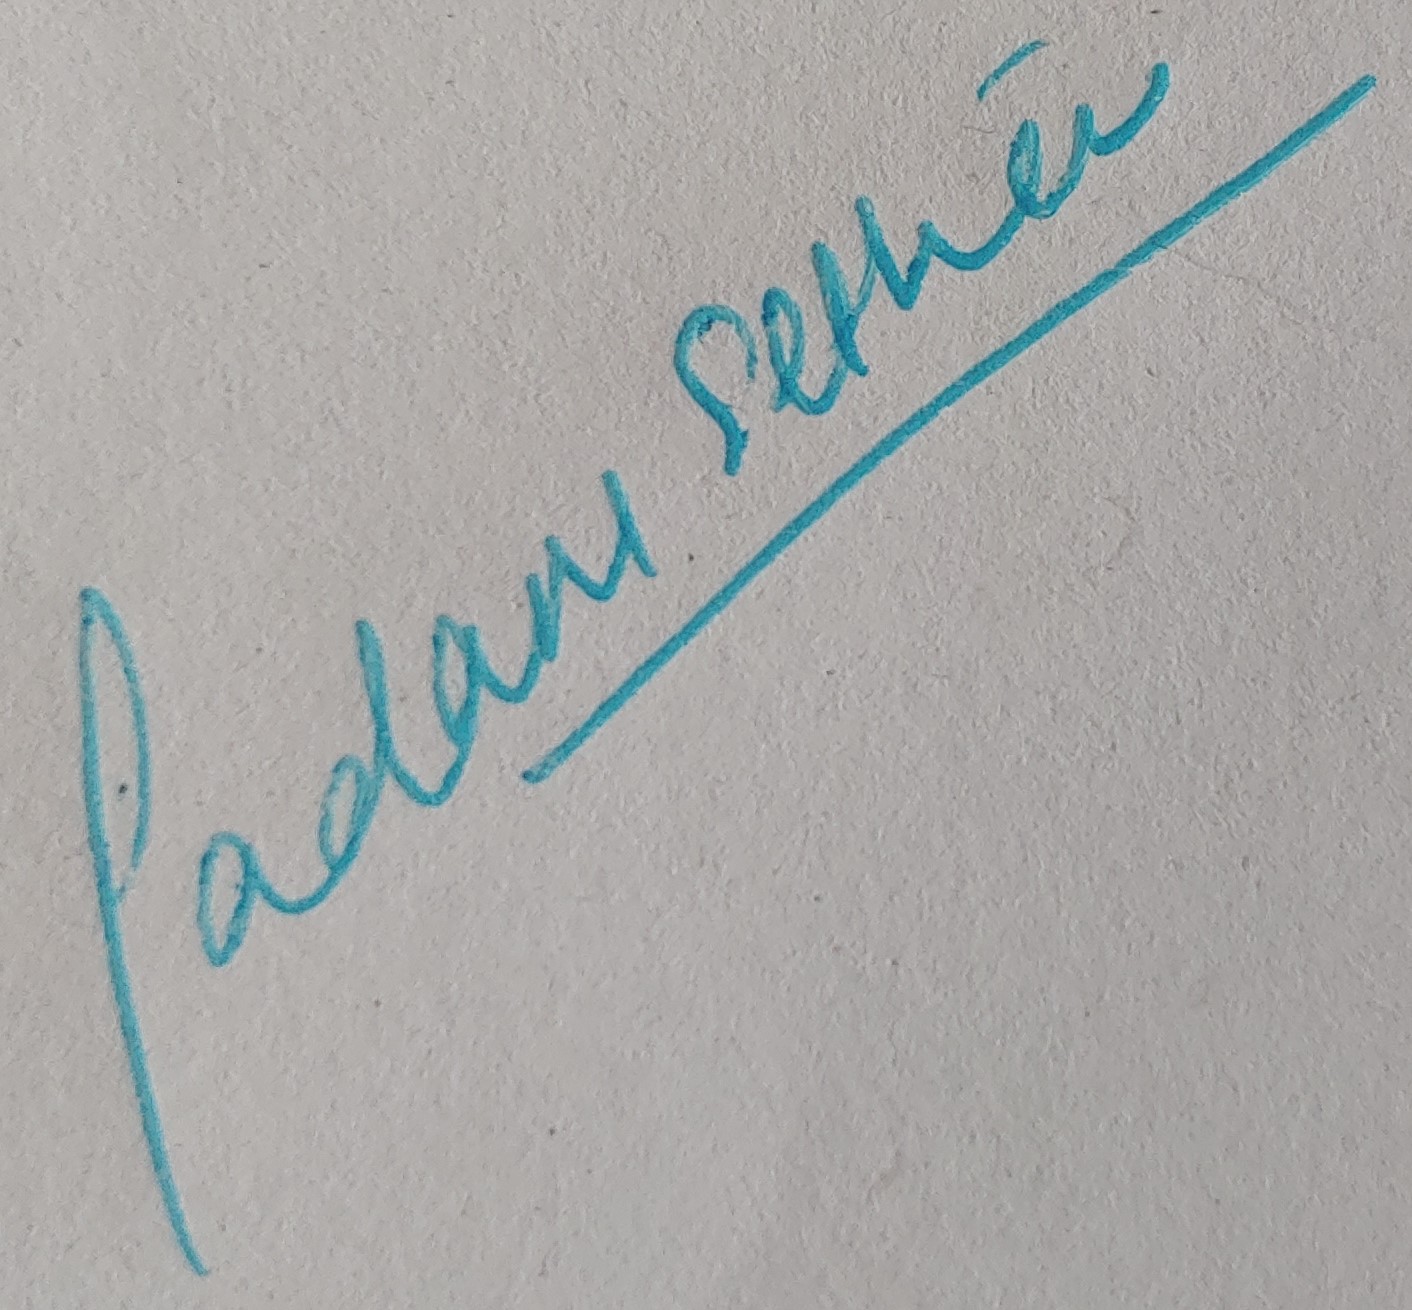 Padam Sethia